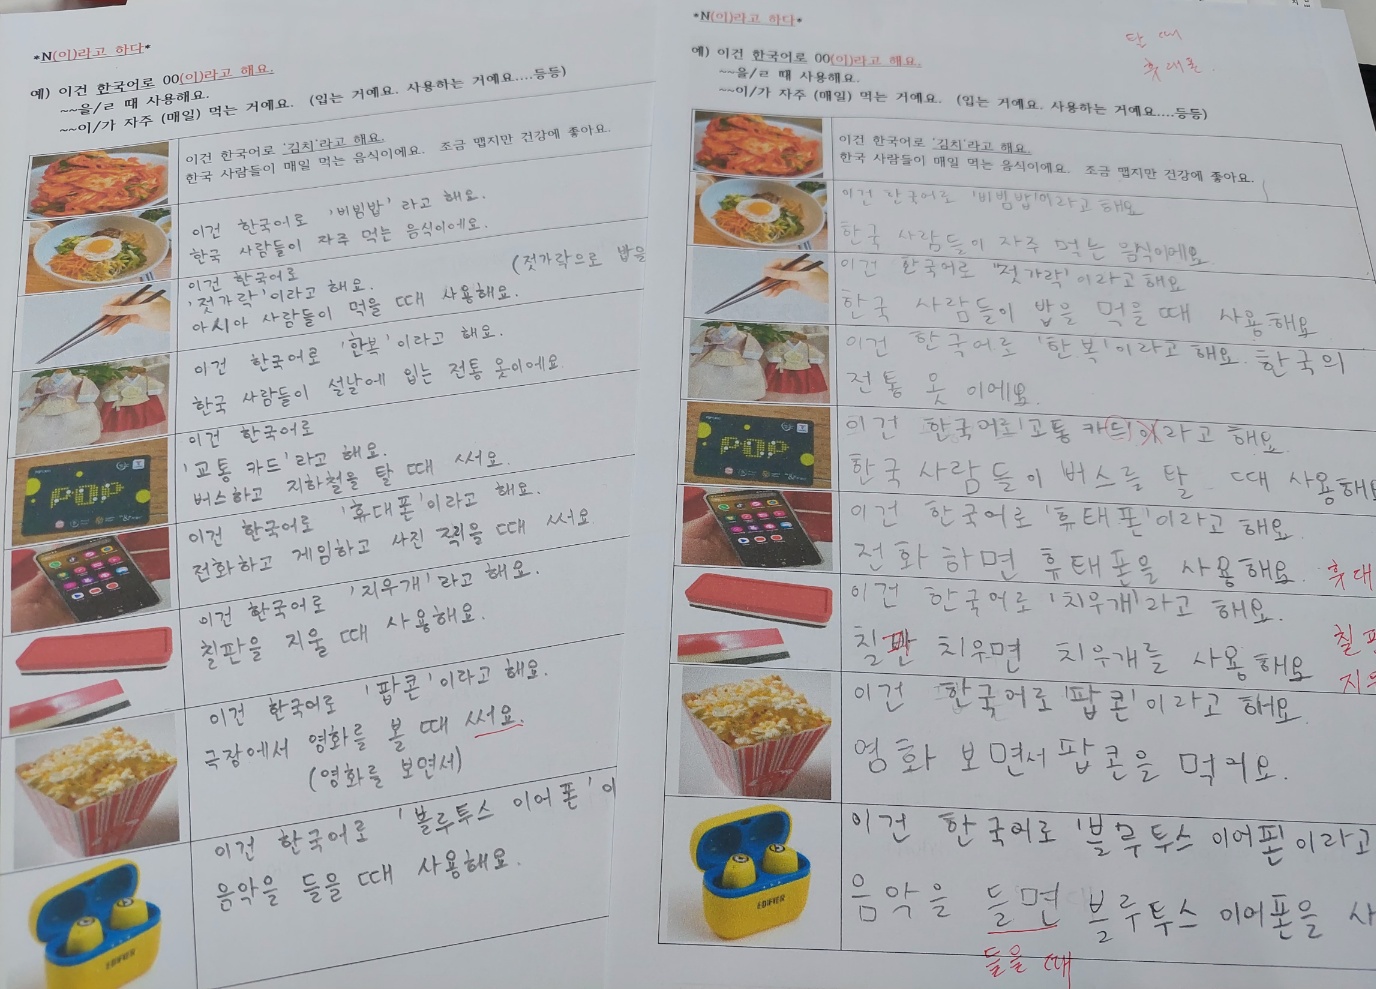 *N(이)라고 하다*
예) 이건 한국어로 00(이)라고 해요.
~~을/ㄹ 때 사용해요.
~~이/가 자주 (매일) 먹는 거예요. (입는 거예요. 사용하는 거예요....등등)
이건 한국어로 '김치'라고 해요.
한국 사람들이 매일 먹는 음식이에요. 조금 맵지만 건강에 좋아요.
이건 한국어로 '비빔밥' 라고 해요.
한국 사람들이 자주 먹는 음식이에요.
이건 한국어로
'젓가락'이라고 해요. (젓가락으로 밥을
아시아 사람들이 먹을 때 사용해요.
이건 한국어로 '한복'이라고 해요.
한국 사람들이 설날에 입는 전통 옷이에요
이건 한국어로
'교통 카드'라고 해요.
버스하고 지하철을 탈 때 써요.
POP
이건 한국어로 '휴대폰'이라고 해요.
전화하고 게임하고 사진 찍을 때 써요
이건 한국어로 '지우개'라고 해요.
칠판을 지울 때 사용해요.
이건 한국어로 '팝콘'이라고 해요.
극장에서 영화를 볼 때 써요.
(영화를 보면서)
이건 한국어로 '블루투스 이어폰'이
음악을 들을 때 사용해요.
EDIFIER
*N(이)라고 하다*
탈 때
휴대폰.
예) 이건 한국어로 00(이)라고 해요.
~~을/ㄹ 때 사용해요.
~~이/가 자주 (매일) 먹는 거예요. (입는 거예요. 사용하는 거예요....등등)
이건 한국어로 '김치'라고 해요.
한국 사람들이 매일 먹는 음식이에요. 조금 맵지만 건강에 좋아요.
이건 한국어로 '비빔밥'이라고 해요
한국 사람들이 자주 먹는 음식이에요.
이건 한국어로 '젓가락'이라고 해요
한국 사람들이 밥을 먹을 때 사용해요
이건 한국어로 '한복'이라고 해요. 한국의
전통 옷 이에요.
이건 한국어로 '교통 카드'이라고 해요
한국 사람들이 버스를 탈 때 사용해요
POP
이건 한국어로 '휴태폰'이라고 해요.
전화 하면 휴태폰을 사용해요. 휴대
이건 한국어로 '치우개'라고 해요.
칠판 치우면 치우개를 사용해요
칠판
지우
이건 한국어로 '팝콘'이라고 해요.
영화 보면서 팝콘을 먹어요.
이건 한국어로 '블루투스 이어폰이라고
음악을 들면 블루투스 이어폰을 사
들을 때
EDIFIER